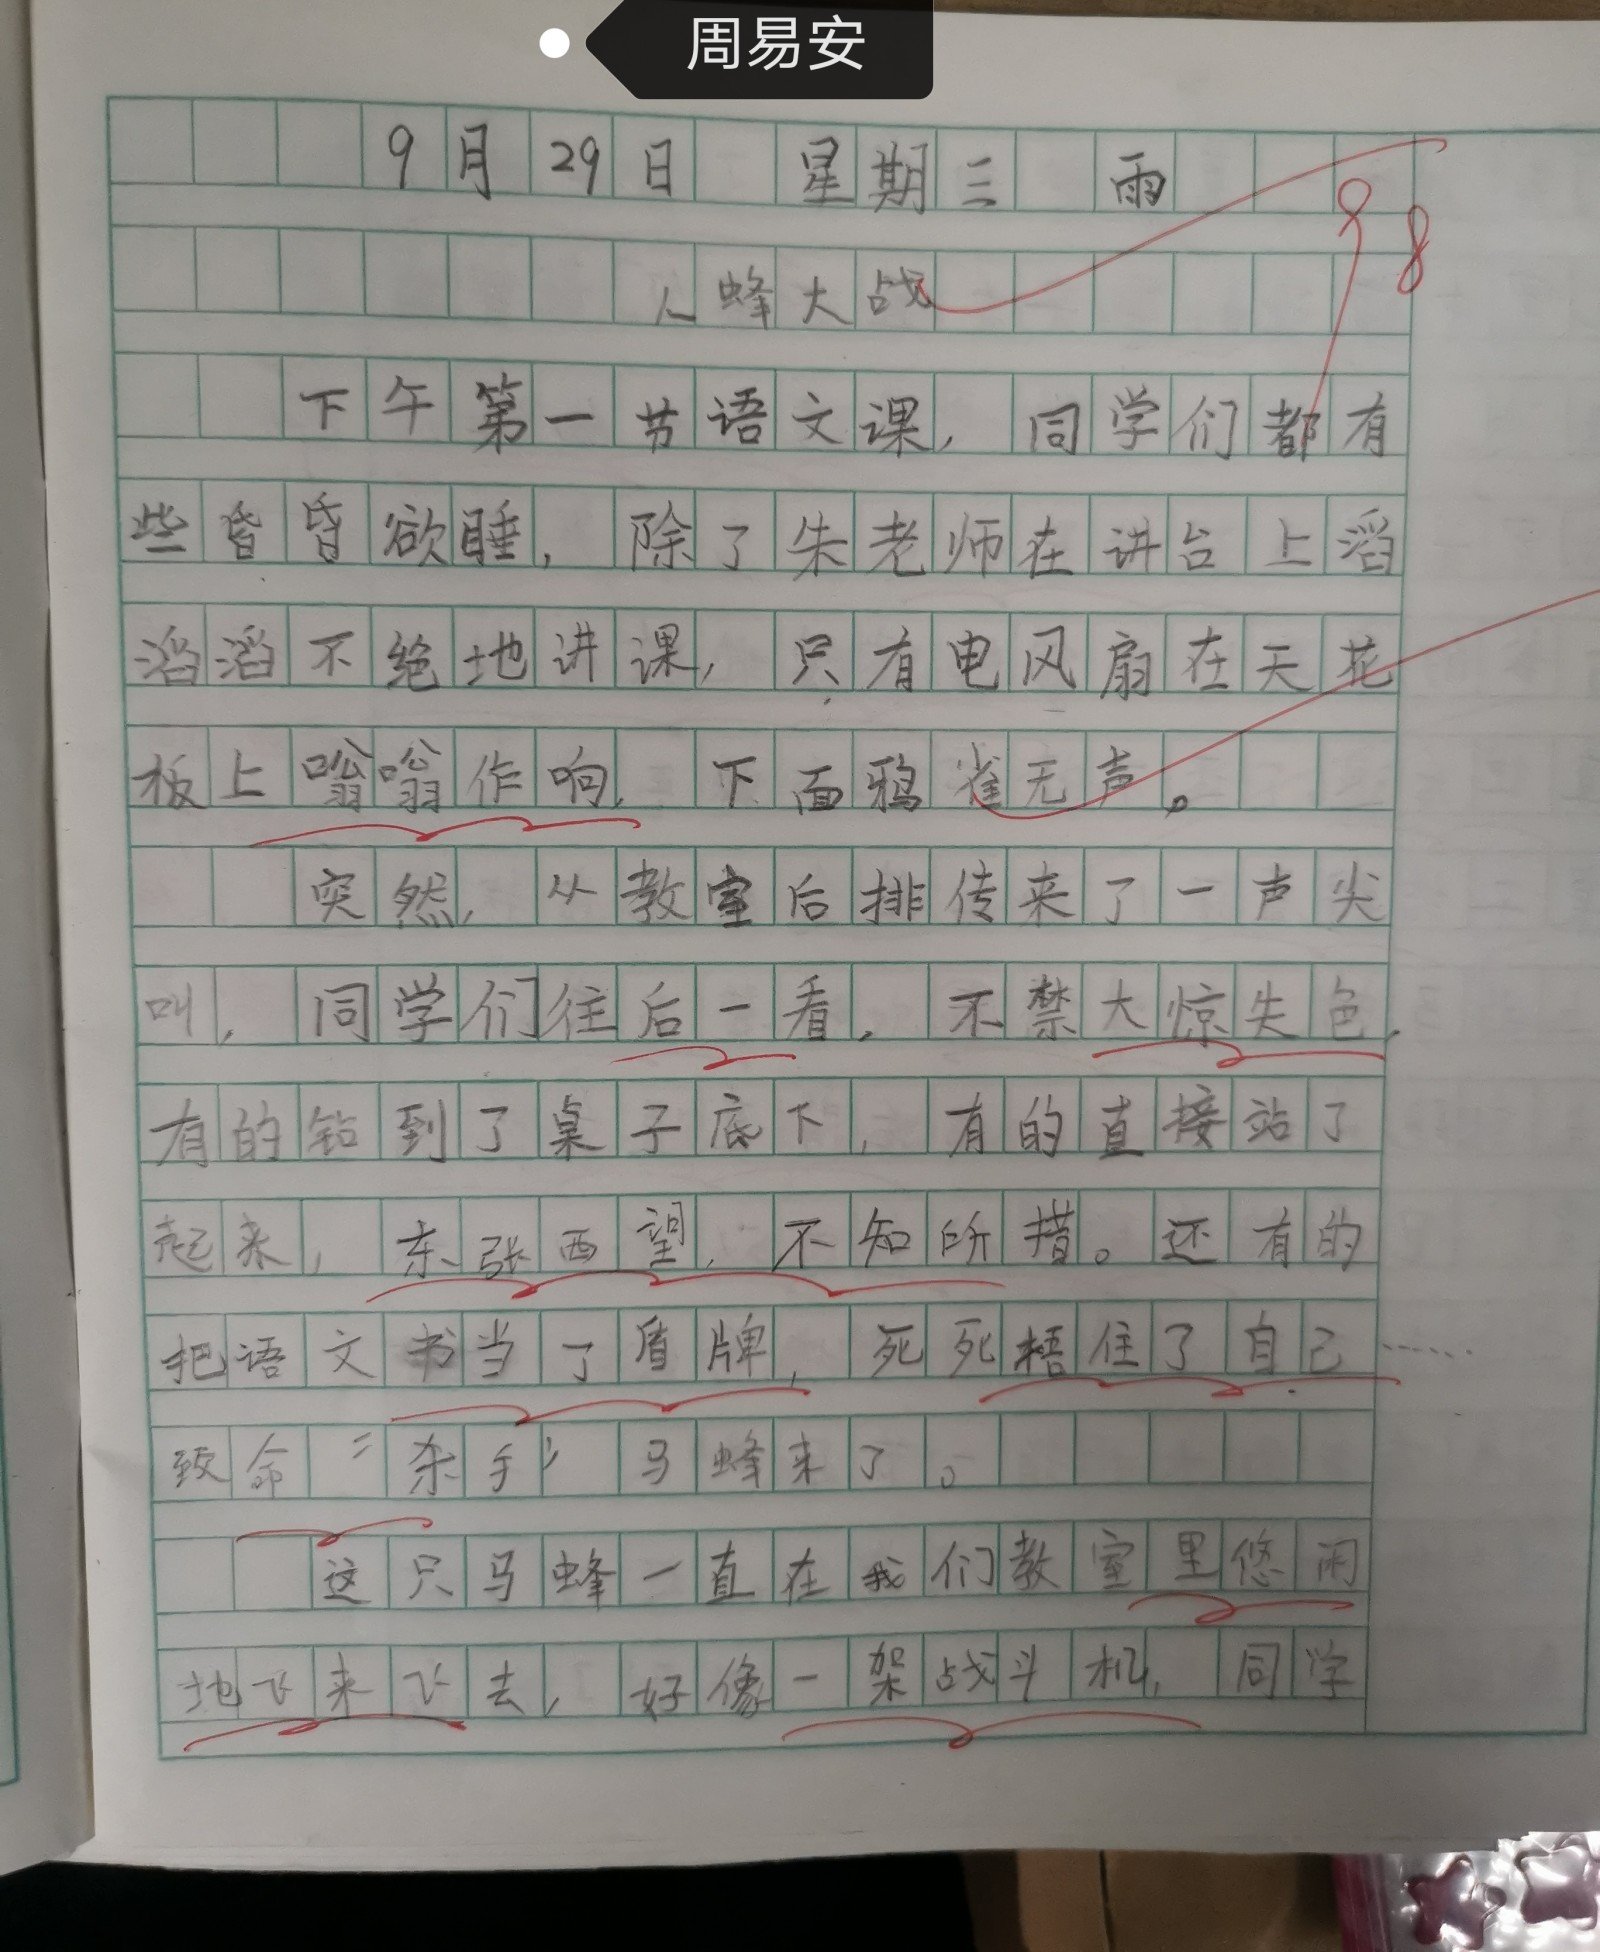 周易安
9月29日 星期三 雨
人蜂大战
98
下午第一节语文课，同学们都有
些昏昏欲睡，除了朱老师在讲台上滔
滔滔不绝地讲课，只有电风扇在天花
板上嗡嗡作响，下面鸦雀无声。
突然，从教室后排传来了一声尖
叫，同学们往后一看，不禁大惊失色，
有的钻到了桌子底下，有的直接站了
起来，东张西望，不知所措。还有的
把语文书当了盾牌，死死捂住了自己……
致命“杀手”马蜂来了。
这只马蜂一直在我们教室里悠闲
地飞来飞去，好像一架战斗机，同学